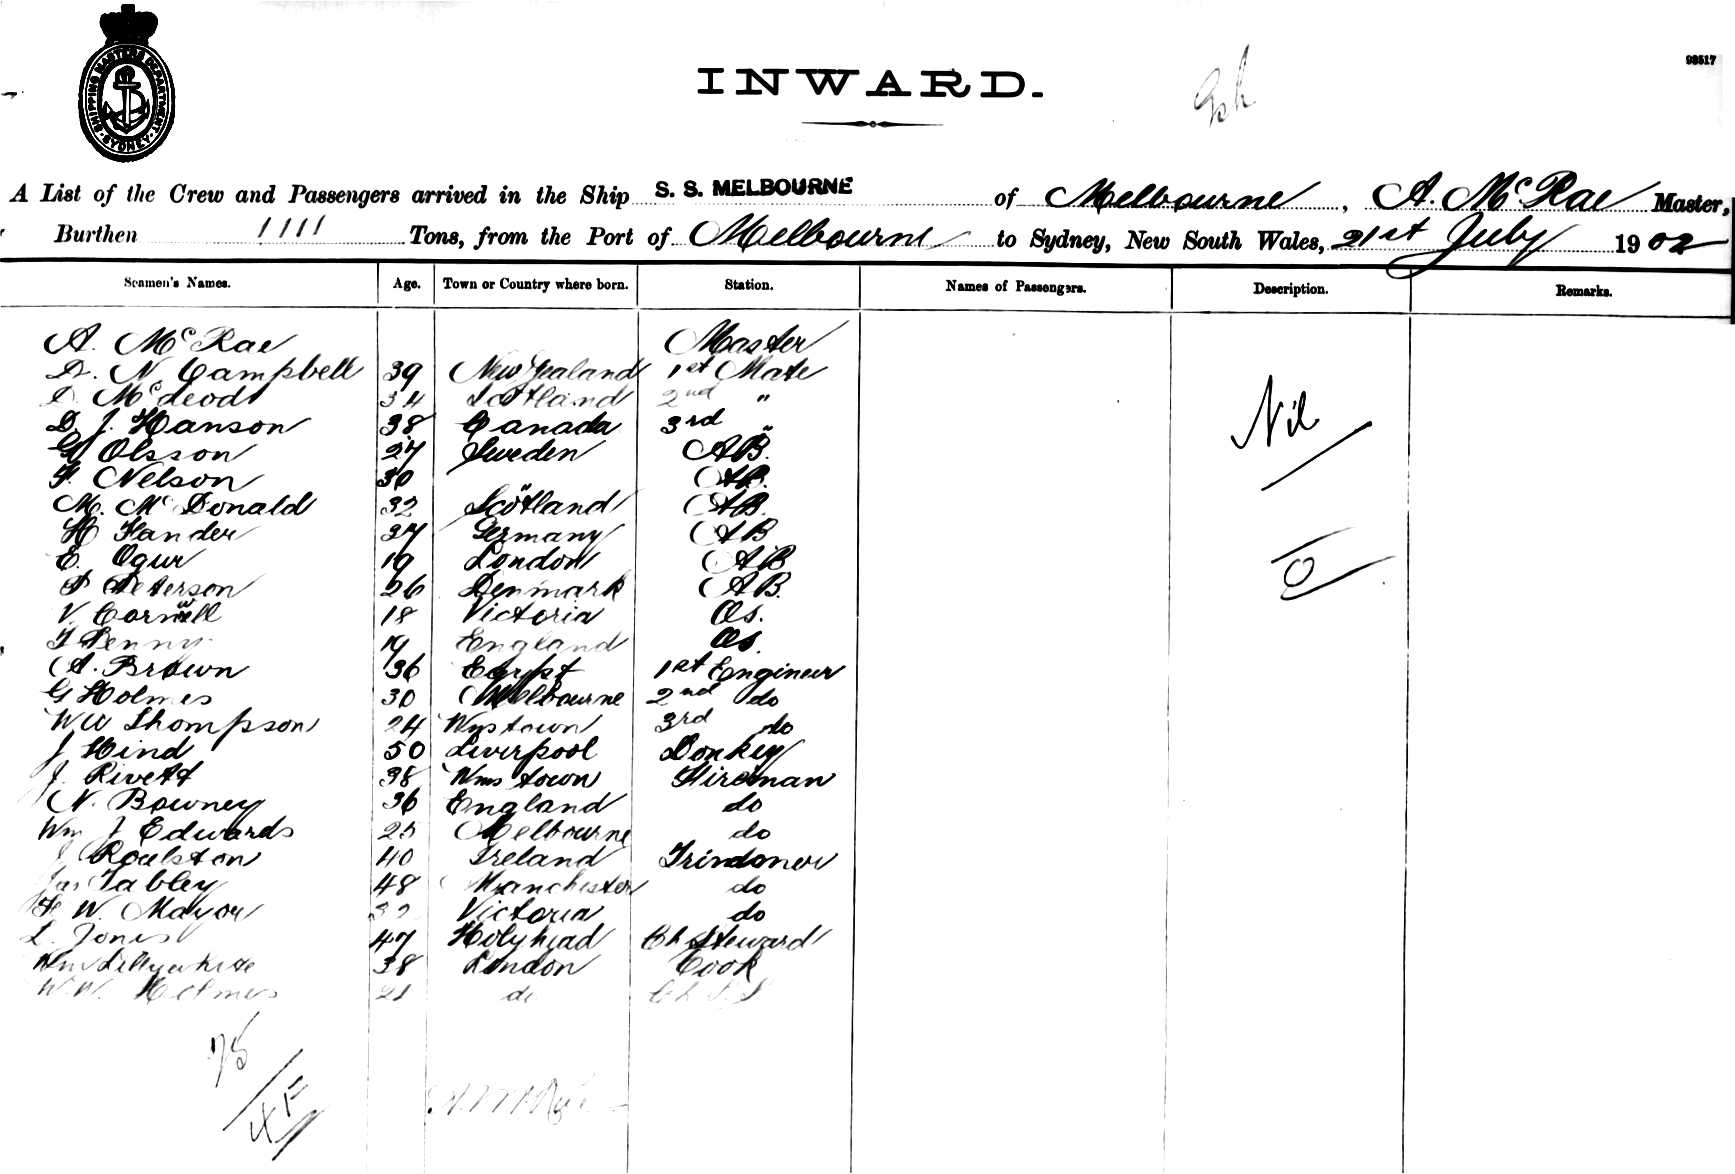 SHIPPING MASTERS DEPARTMENT SYDNEY
INWARD.
93517
A List of the Crew and Passengers arrived in the Ship S. S. MELBOURNE of Melbourne, A. McRae Master,
Burthen 1111 Tons, from the Port of Melbourne to Sydney, New South Wales, 21st July 1902
Seamen's Names. Age. Town or Country where born. Station. Names of Passengers. Description. Remarks.
A. McRae Master
D. N. Campbell 39 New Zealand 1st Mate
D. McLeod 34 Scotland 2nd "
D. J. Hanson 38 Canada 3rd "
Nil
G Olsson 27 Sweden AB.
F. Nelson 30 " AB.
M. McDonald 32 Scotland AB.
H Flander 27 Germany AB
E. Ogur 19 London AB
P Peterson 26 Denmark AB.
V. Cornwell 18 Victoria Os.
T Penny 19 England Os.
A. Brown 36 Egypt 1st Engineer
G Holmes 30 Melbourne 2nd do
W W Thompson 24 Wmstown 3rd do
J Hind 50 Liverpool Donkey
J. Rivett 38 Wms town Fireman
N. Bowney 36 England do
Wm J Edwards 25 Melbourne do
J Roulston 40 Ireland Trimmer
Jas Tabley 48 Manchester do
W. Mayor 32 Victoria do
L. Jones 47 Holyhead Ch Steward
Wm Lillywhite 38 London Cook
W. W. Holmes 21 do